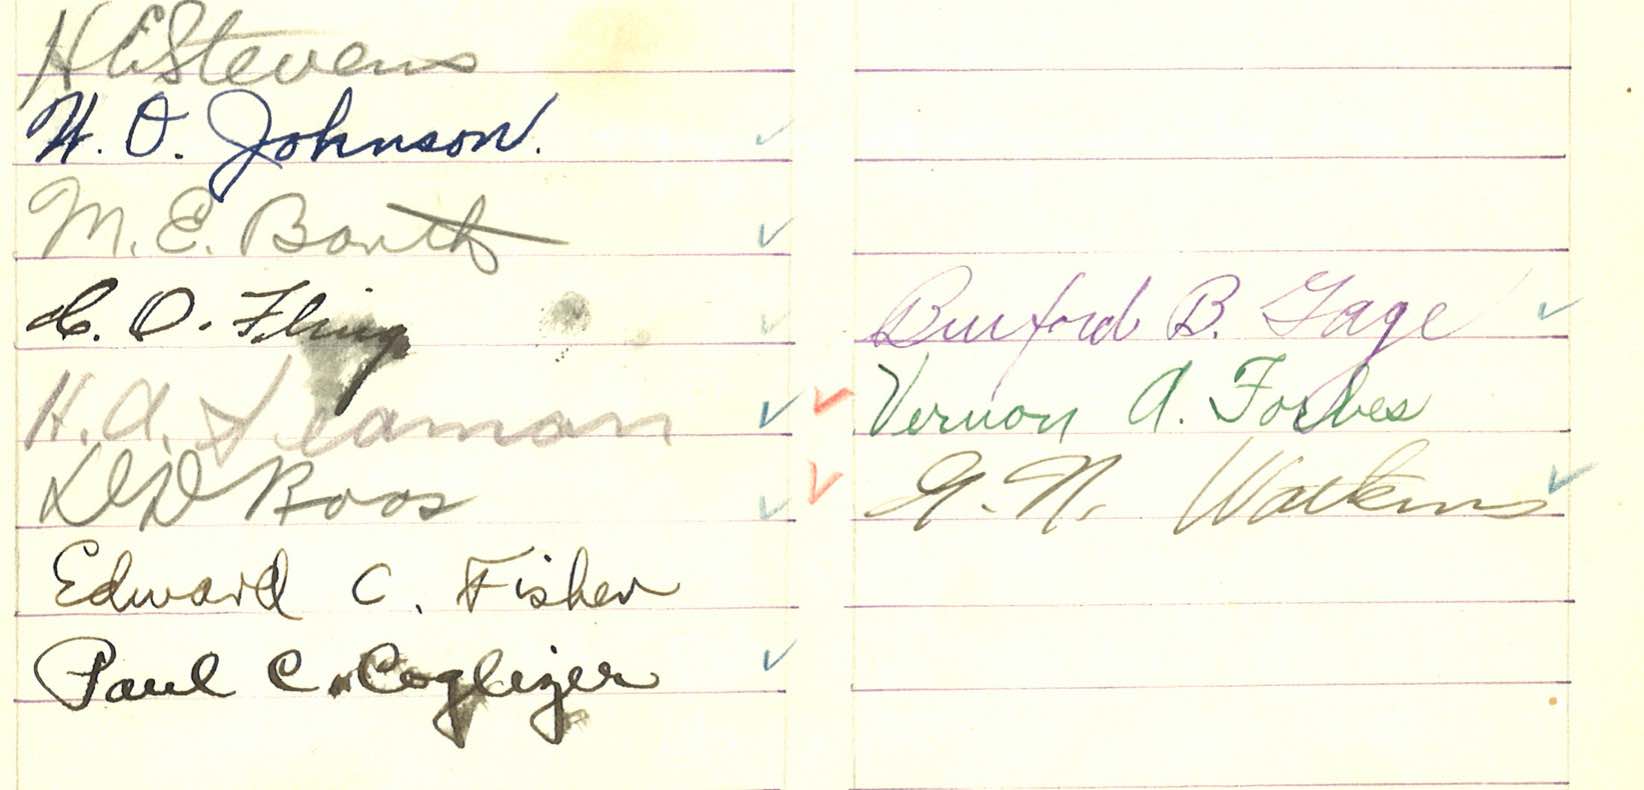 H E Stevens
H. O. Johnson.
M. E. Booth
C. O. Fling
H. A. Seaman
Roos
Edward C. Fisher
Paul C. Coglizer
Burford B. Gage
Vernon A. Forbes
G. N. Watkins